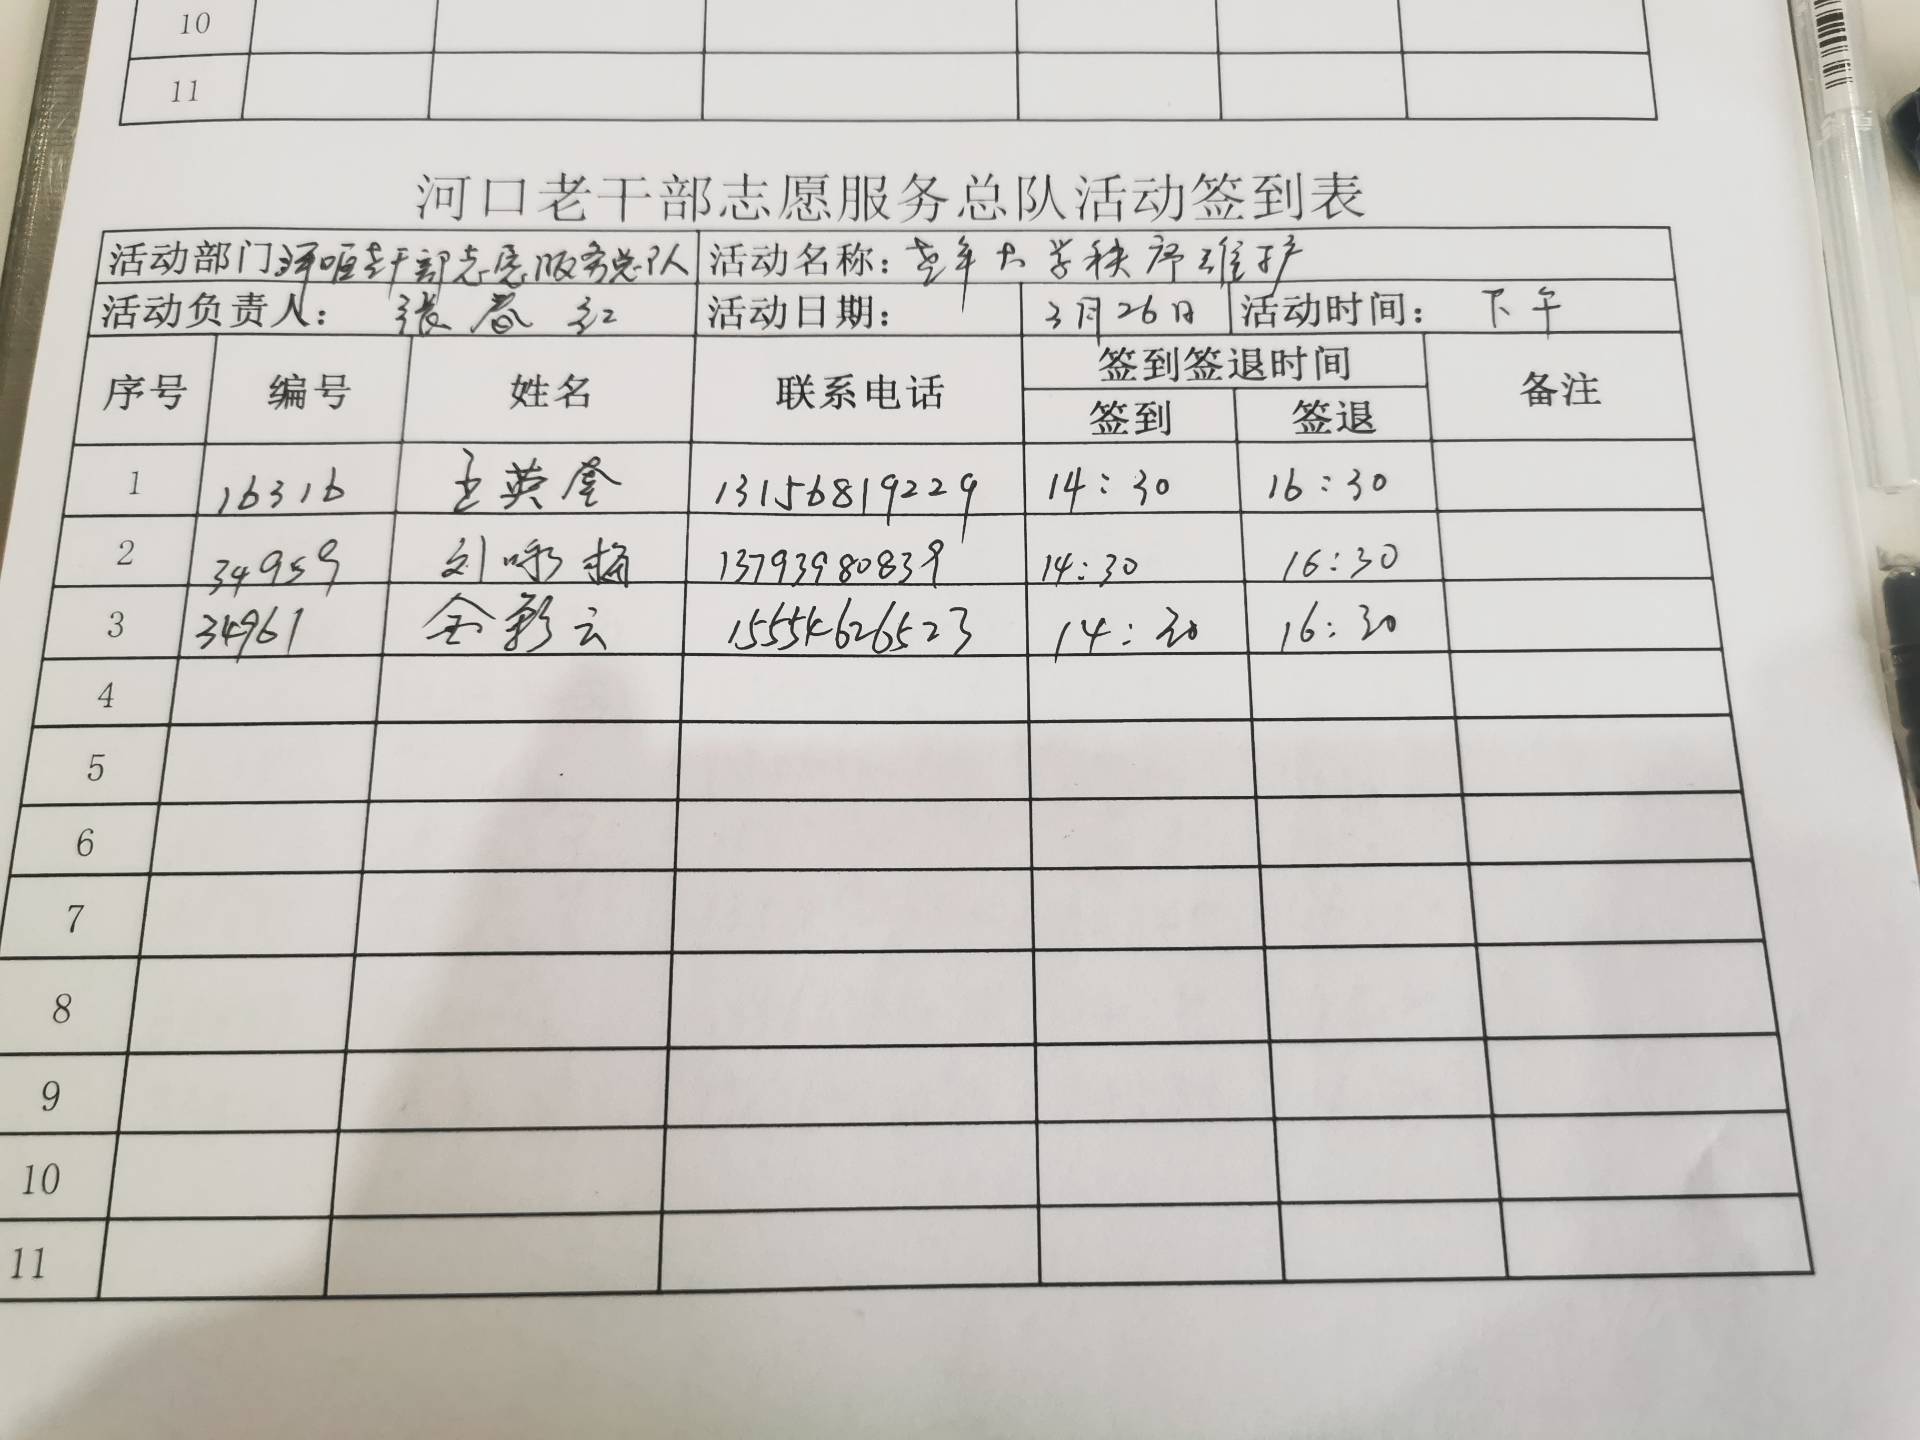 10
11
河口老干部志愿服务总队活动签到表
活动部门 河口区老干部志愿服务总队 活动名称：老年大学秩序维护
活动负责人：张春红 活动日期：3月26日 活动时间：下午
序号 编号 姓名 联系电话 签到签退时间 备注
签到 签退
1 16316 王英奎 13156819229 14:30 16:30
2 34959 刘咏梅 13793980839 14:30 16:30
3 34961 全彩云 15554626523 14:30 16:30
4
5
6
7
8
9
10
11